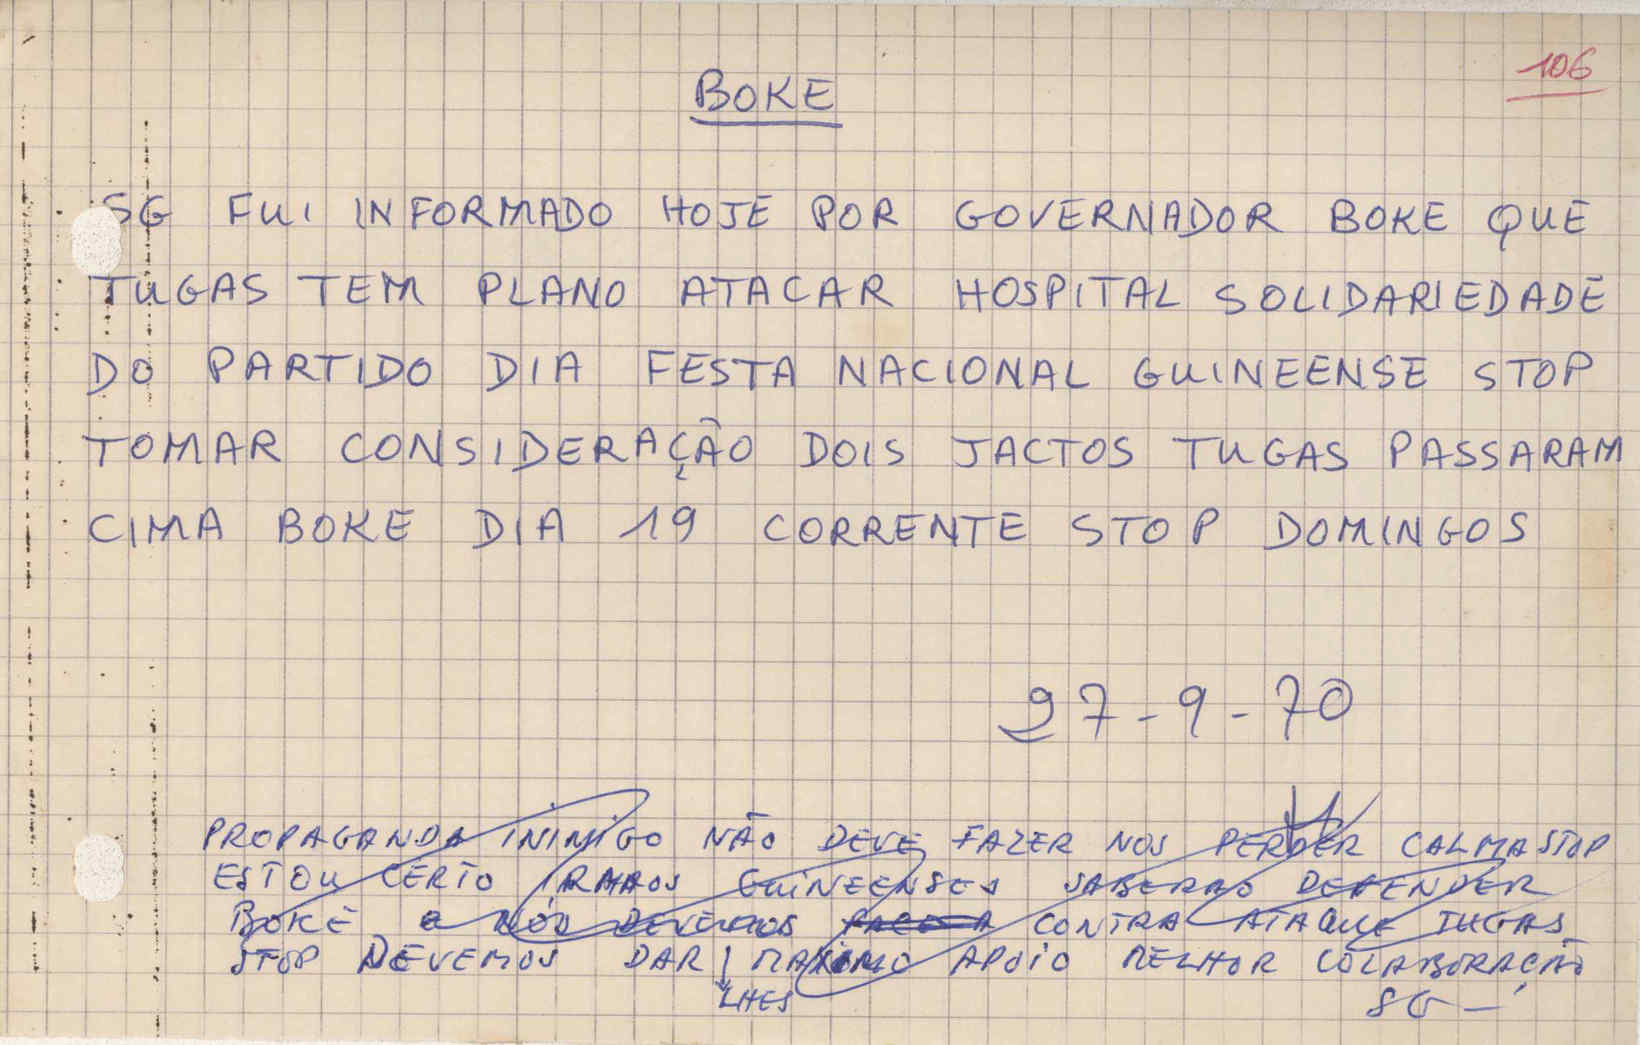 106
BOKE
SG FUI INFORMADO HOJE POR GOVERNADOR BOKE QUE
TUGAS TEM PLANO ATACAR HOSPITAL SOLIDARIEDADE
DO PARTIDO DIA FESTA NACIONAL GUINEENSE STOP
TOMAR CONSIDERAÇÃO DOIS JACTOS TUGAS PASSARAM
CIMA BOKE DIA 19 CORRENTE STOP DOMINGOS
27-9-70
PROPAGANDA INIMIGO NÃO DEVE FAZER NOS PERDER CALMA STOP
ESTOU CERTO IRMAOS GUINEENSES SABERÃO DEFENDER
BOKÉ CONTRA ATAQUE TUGAS
STOP DEVEMOS DAR MAXIMO APOIO MELHOR COLABORAÇÃO
LHES
SG —